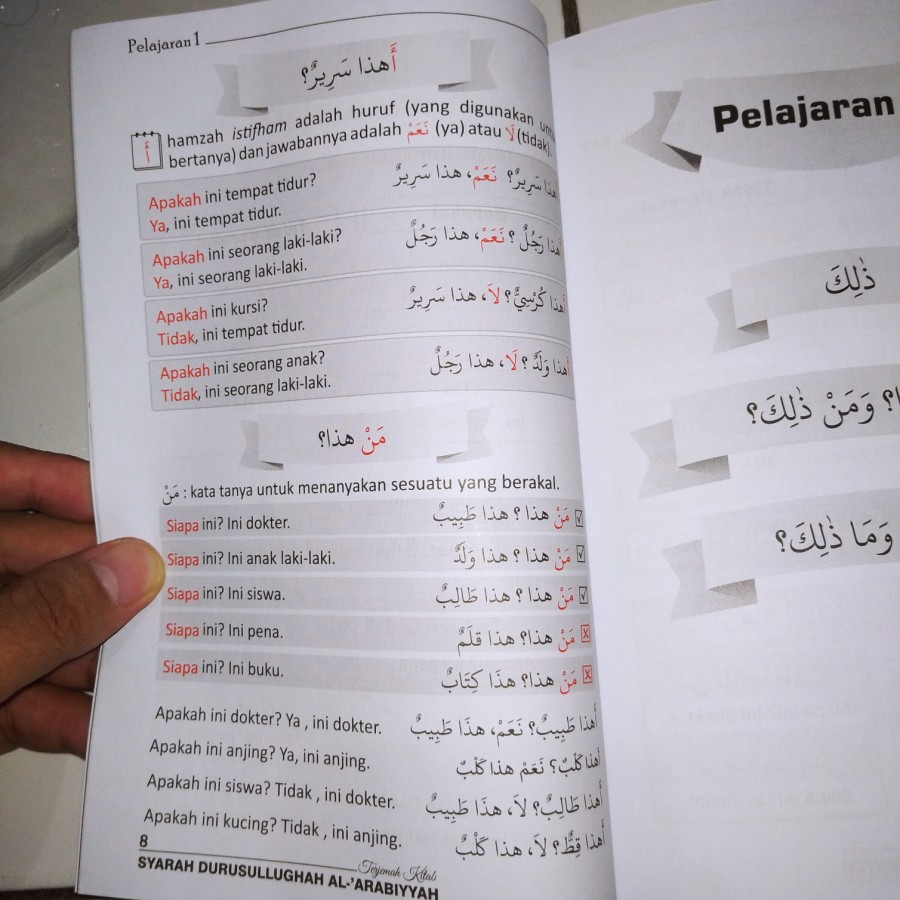 Pelajaran 1
أَهذا سَرِيرٌ؟
أَ
hamzah istifham adalah huruf (yang digunakan
bertanya) dan jawabannya adalah نَعَمْ (ya) atau لَا (tidak).
Apakah ini tempat tidur?
Ya, ini tempat tidur.
سَرِيرٌ؟ نَعَمْ، هذا سَرِيرٌ
Apakah ini seorang laki-laki?
Ya, ini seorang laki-laki.
أهذا رَجُلٌ؟ نَعَمْ، هذا رَجُلٌ
Apakah ini kursi?
Tidak, ini tempat tidur.
أهذا كُرْسِيٌّ؟ لاَ، هذا سَرِيرٌ
Apakah ini seorang anak?
Tidak, ini seorang laki-laki.
أهذا وَلَدٌ؟ لَا، هذا رَجُلٌ
مَنْ هذا؟
مَنْ : kata tanya untuk menanyakan sesuatu yang berakal.
Siapa ini? Ini dokter. مَنْ هذا؟ هذا طَبِيبٌ
Siapa ini? Ini anak laki-laki. مَنْ هذا؟ هذا وَلَدٌ
Siapa ini? Ini siswa. مَنْ هذا؟ هذا طَالِبٌ
Siapa ini? Ini pena. مَنْ هذا؟ هذا قلَمٌ
Siapa ini? Ini buku. مَنْ هذا؟ هذَا كِتَابٌ
Apakah ini dokter? Ya , ini dokter. أَهذا طَبِيبٌ؟ نَعَمْ، هذَا طَبِيبٌ
Apakah ini anjing? Ya, ini anjing. أَهذا كَلْبٌ؟ نَعَمْ هذا كَلْبٌ
Apakah ini siswa? Tidak , ini dokter. أَهذا طَالِبٌ؟ لاَ، هذَا طَبِيبٌ
Apakah ini kucing? Tidak , ini anjing. أَهذا قِطٌّ؟ لاَ، هذا كَلْبٌ
8
Terjemah Kitab
SYARAH DURUSULLUGHAH AL-'ARABIYYAH
Pelajaran
ذٰلِكَ
وَمَنْ ذٰلِكَ؟
وَمَا ذٰلِكَ؟